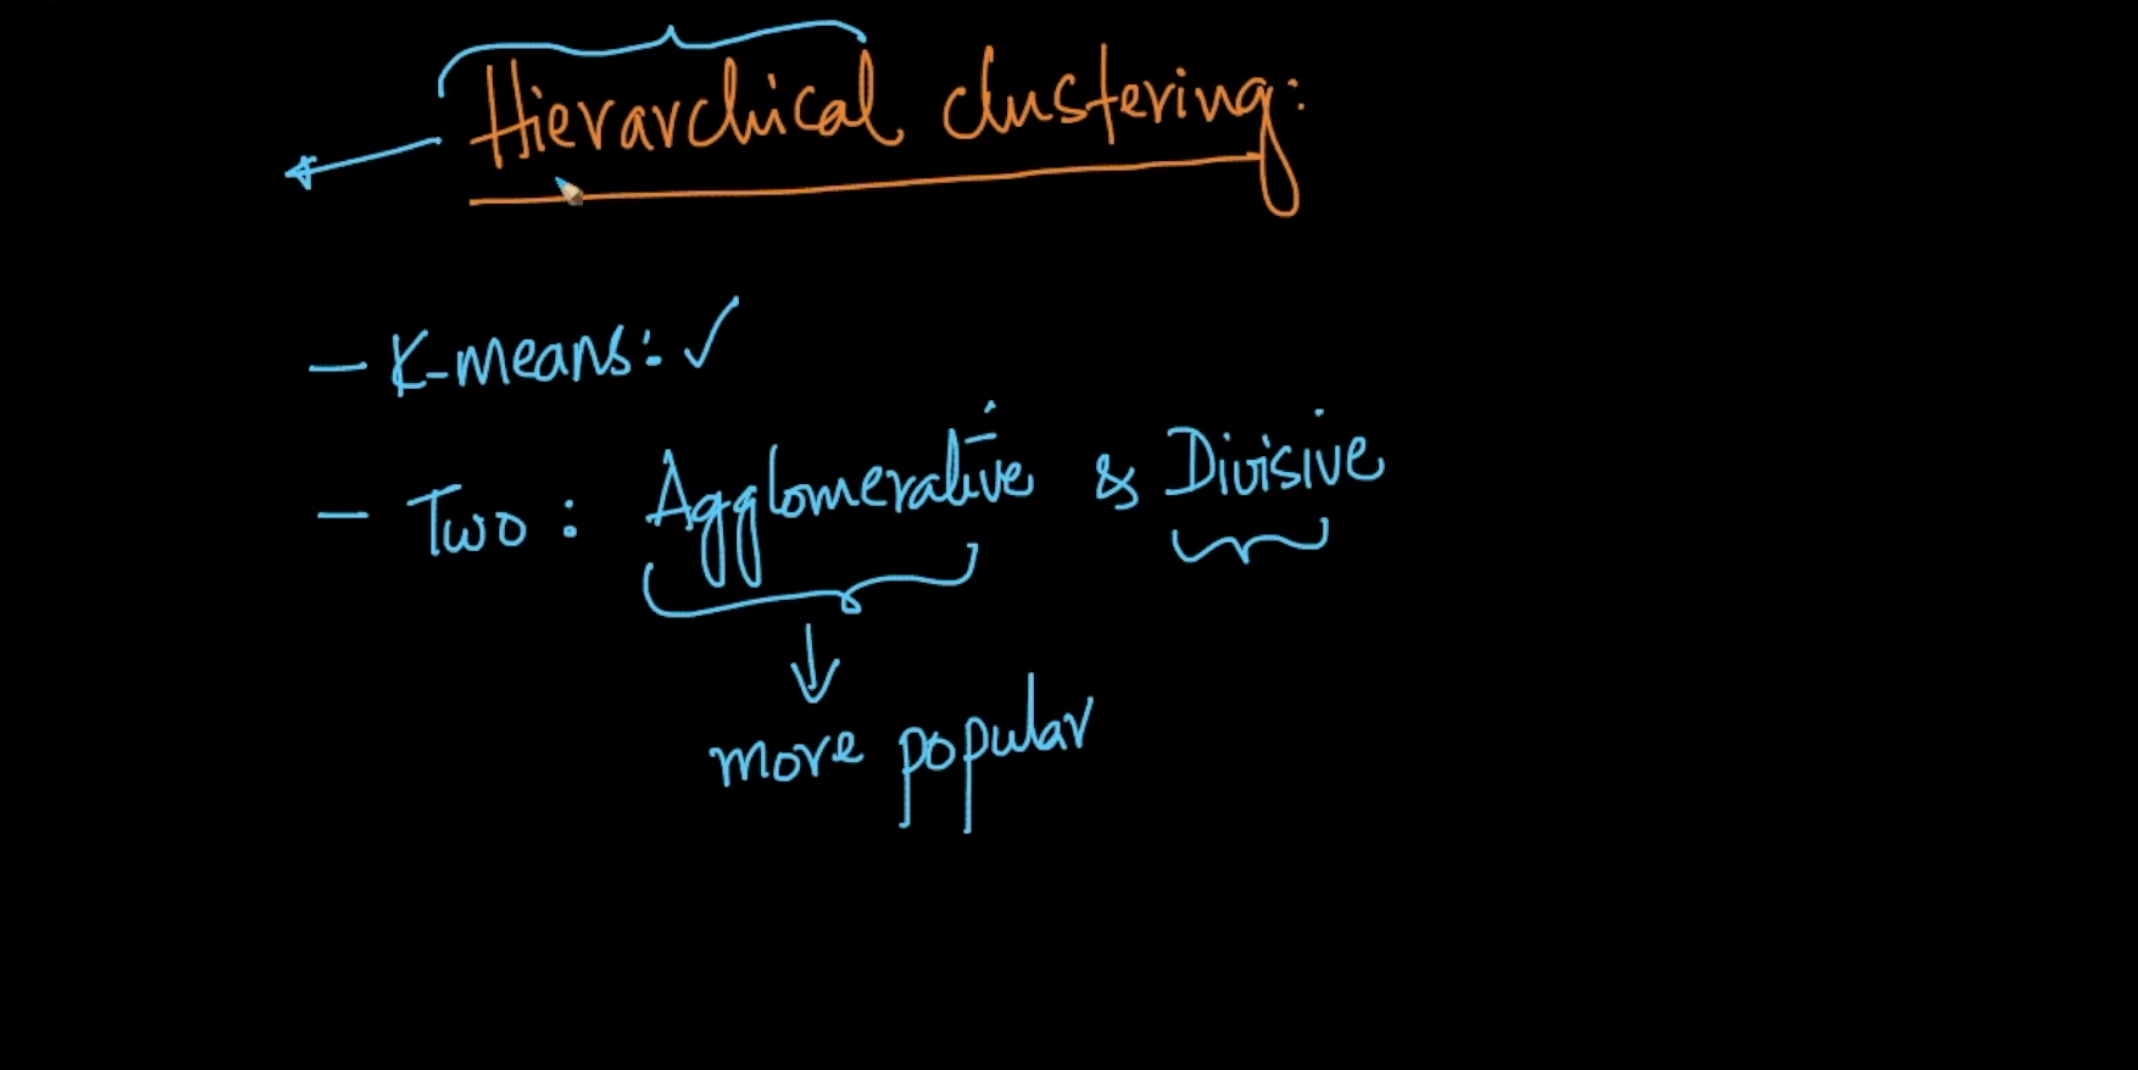 Hierarchical clustering:
- K-means: ✓
- Two: Agglomerative & Divisive
more popular